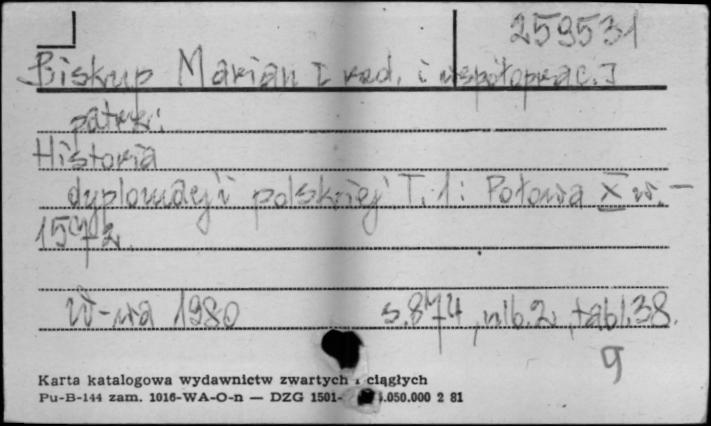 259531
Biskup Marian [red. i współoprac.]
patrz:
Historia
dyplomacji polskiej T. 1: Połowa X w. –
1572.
W-wa 1980 s. 874, nlb. 2, tabl. 38.
9
Karta katalogowa wydawnictw zwartych i ciągłych
Pu-B-144 zam. 1016-WA-O-n — DZG 1501- .050.000 2 81